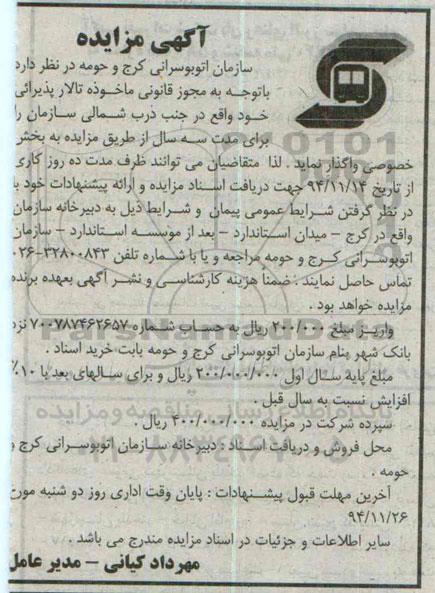 آگهی مزایده
سازمان اتوبوسرانی کرج و حومه در نظر دارد
باتوجه به مجوز قانونی ماخوذه تالار پذیرائی
خود واقع در جنب درب شمالی سازمان را
برای مدت سه سال از طریق مزایده به بخش
خصوصی واگذار نماید . لذا متقاضیان می توانند ظرف مدت ده روز کاری
از تاریخ ۹۴/۱۱/۱۴ جهت دریافت اسناد مزایده و ارائه پیشنهادات خود با
در نظر گرفتن شرایط عمومی پیمان و شرایط ذیل به دبیرخانه سازمان
واقع در کرج – میدان استاندارد – بعد از موسسه استاندارد – سازمان
اتوبوسرانی کرج و حومه مراجعه و یا با شماره تلفن ۳۲۸۰۰۸۴۳-۰۲۶
تماس حاصل نمایند : ضمناً هزینه کارشناسی و نشر آگهی بعهده برنده
مزایده خواهد بود .
واریز مبلغ ۲۰۰/۰۰۰ ریال به حساب شماره ۷۰۰۷۸۷۴۶۲۶۵۷ نزد
بانک شهر بنام سازمان اتوبوسرانی کرج و حومه بابت خرید اسناد .
مبلغ پایه سال اول ۲۰۰/۰۰۰/۰۰۰ ریال و برای سالهای بعد با ۱۰٪
افزایش نسبت به سال قبل .
سپرده شرکت در مزایده ۴۰۰/۰۰۰/۰۰۰ ریال .
محل فروش و دریافت اسناد : دبیرخانه سازمان اتوبوسرانی کرج و
حومه .
آخرین مهلت قبول پیشنهادات : پایان وقت اداری روز دو شنبه مورخ
۹۴/۱۱/۲۶
سایر اطلاعات و جزئیات در اسناد مزایده مندرج می باشد .
مهرداد کیانی – مدیر عامل